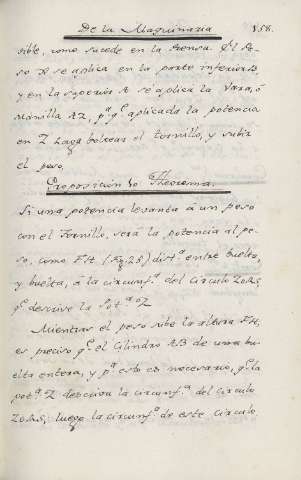 De la Maquinaria 158.
sible, como sucede en la Prensa. El Pe-
so X se aplica en la parte inferior B,
y en la superior A se aplica la Vara, ó
Manilla AZ, pª qᵉ aplicada la potencia
en Z haga bolbear el tornillo, y subir
el peso.
Proposicion 10. Theorema.
Si una potencia levanta á un peso
con el Tornillo, será la potencia al pe-
so, como FH (Fig 28) distª entre buelta,
y buelta, á la circunfª del Circulo ZORS,
qᵉ descrive la Potª Z
Mientras el peso sube la altura FH,
es preciso qᵉ el Cilindro AB de una bu-
elta entera, y pª esto es necesario, qᵉ la
potª Z descriva la circunfª del circulo
ZORS; luego la circunfª de este Circulo